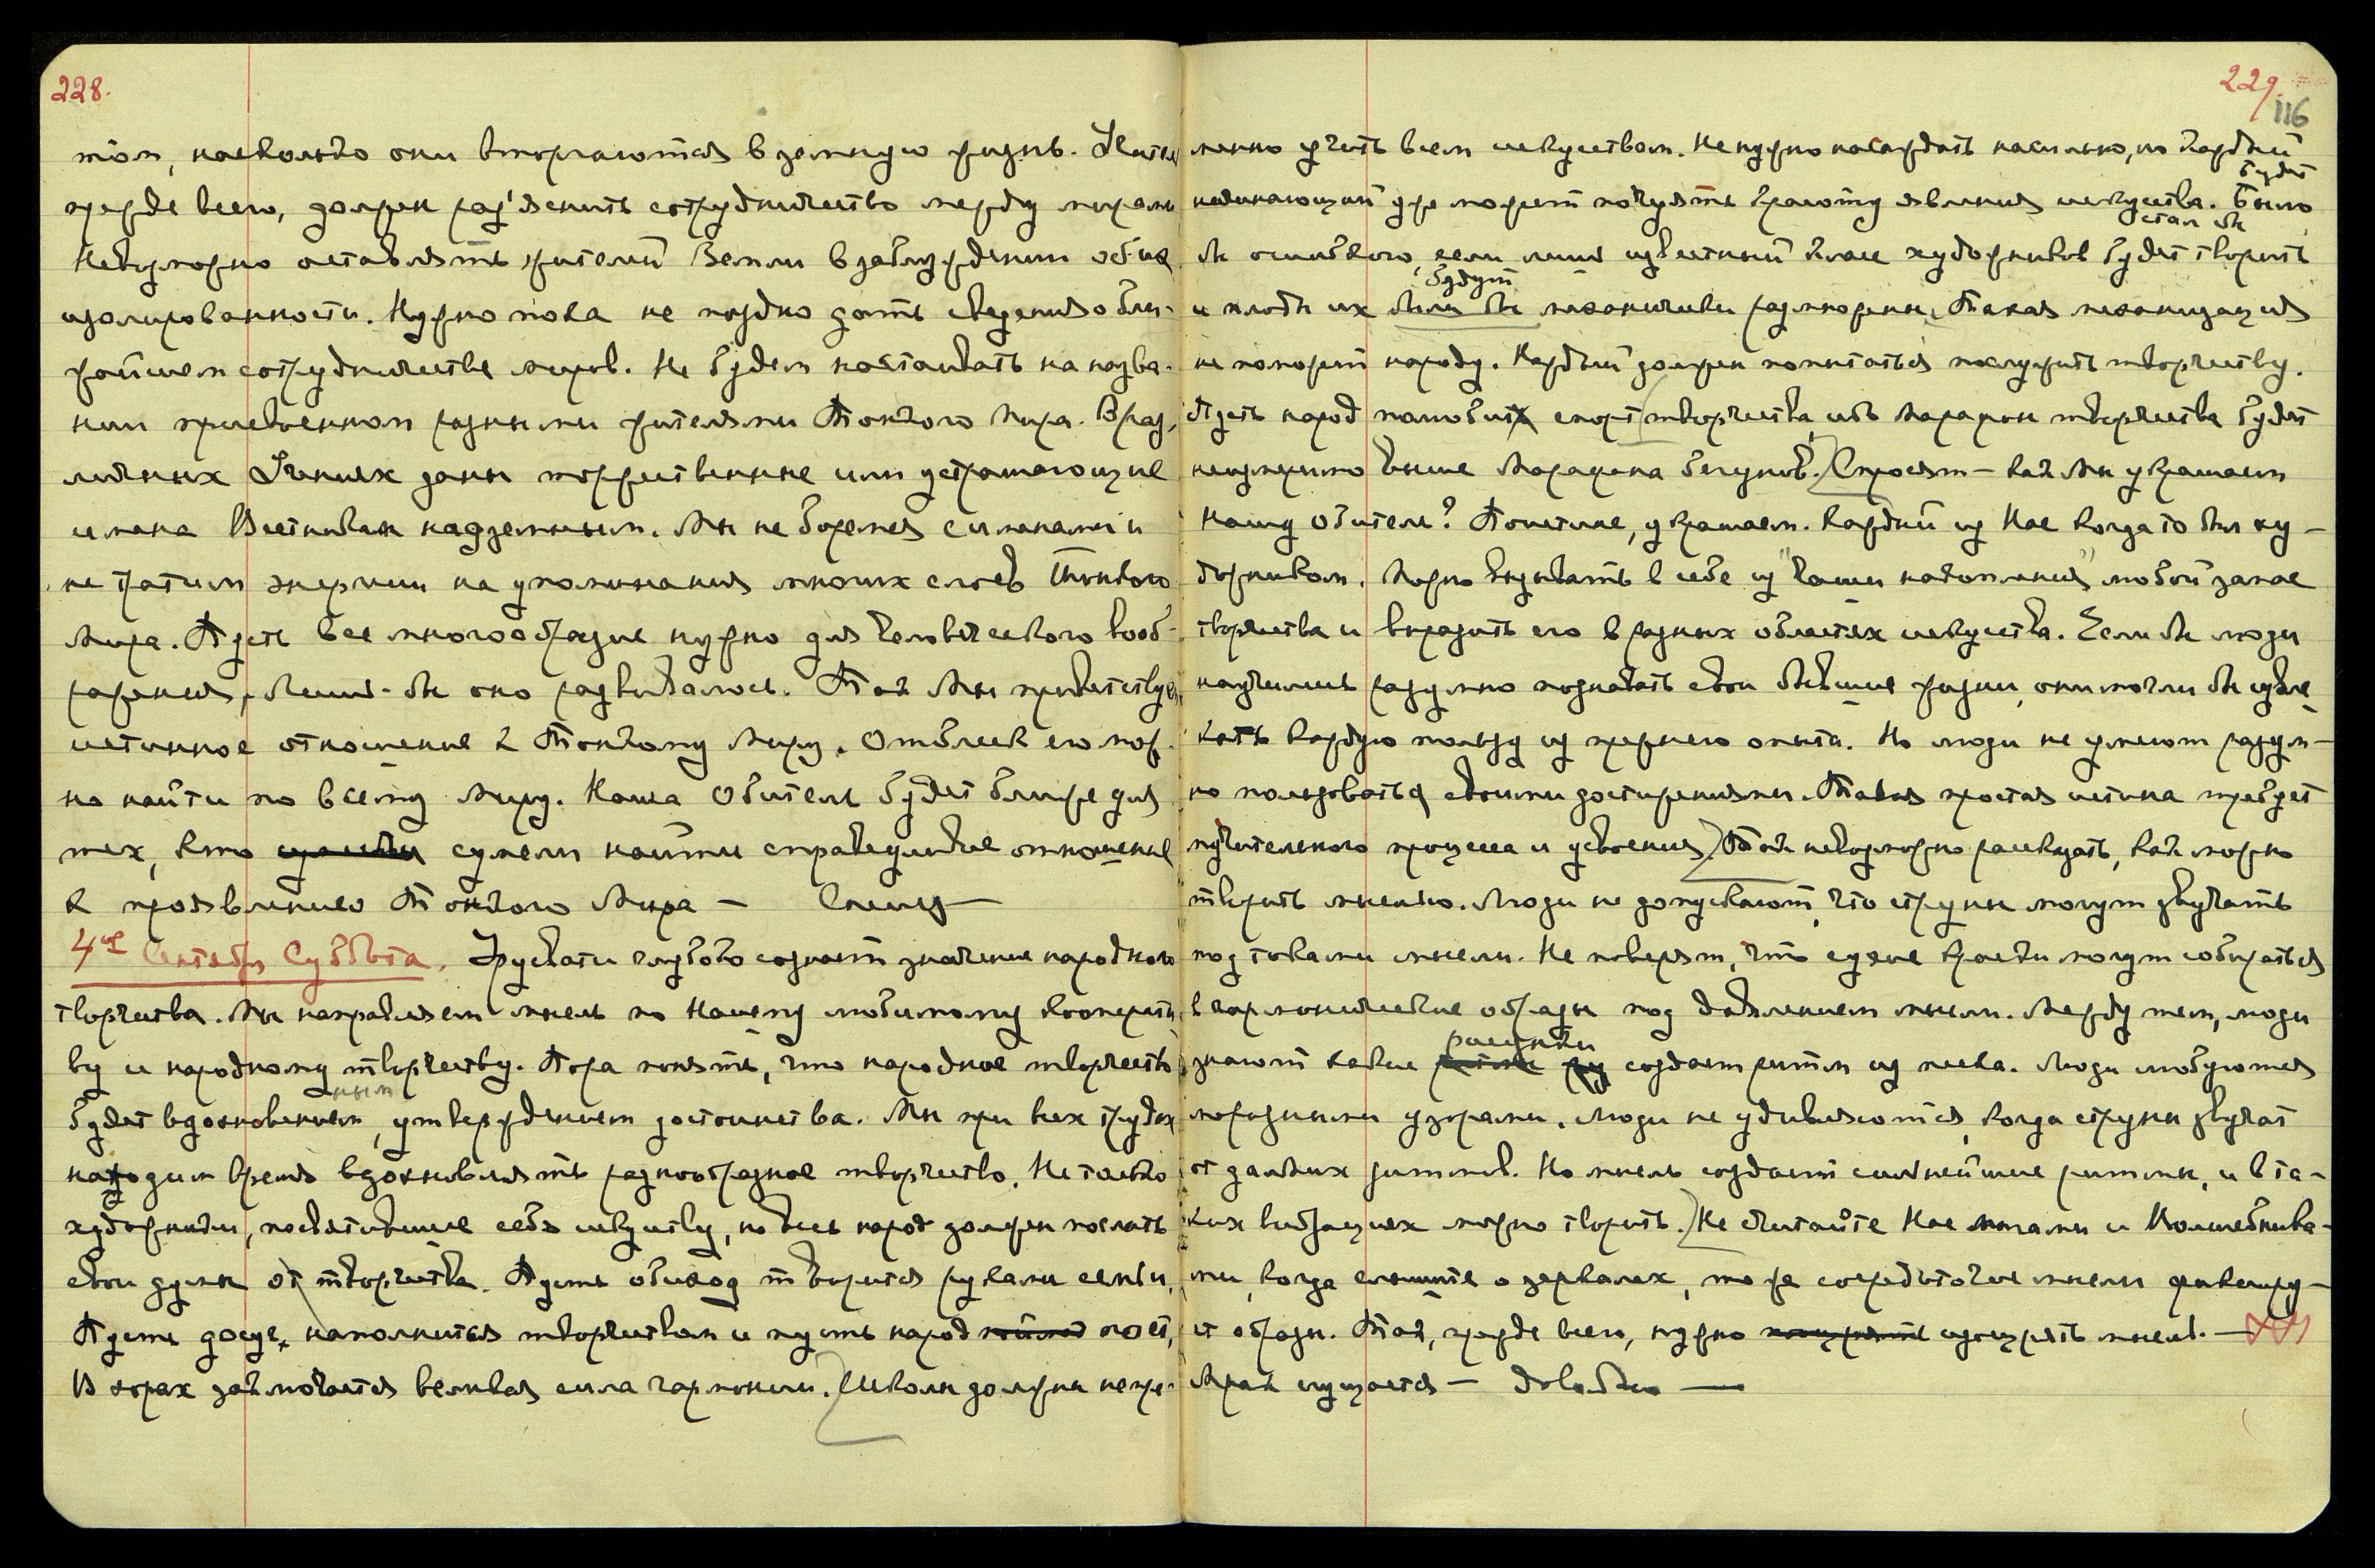 228.
том, насколько они вторгаются в земную жизнь. Учитель
прежде всего, должен раз'яснить сотрудничество между мирами
Невозможно оставлять жителей Земли в заблуждении об их
изолированности. Нужно пока не поздно дать сведения о бли-
жайшем сотрудничестве миров. Не будем настаивать на назва-
нии присвоенном разными жителями Тонкого Мира. В раз-
личных Учениях даны торжественные или устрашающие
имена Вестникам надземным. Мы не боремся с именами и
не тратим энергии на упоминания многих слоев Тонкого
Мира. Пусть все многообразие нужно для человеческого вооб-
ражения, лишь-бы оно развивалось. Так Мы приветствуем
истинное отношение к Тонкому Миру. Отблеск его мож-
но найти по всему Миру. Наша Обитель будет ближе для
тех, кто сумели найти справедливое отношение
к проявлению Тонкого Мира — Спешу —
4ое Сентября Суббота. Урусвати глубоко сознает значение народного
творчества. Мы направляем мысль по Нашему любимому кооперати-
ву и народному творчеству. Пора понять, что народное творчество
ным
будет вдохновением, утверждением достоинства. Мы при всех трудах
находим время вдохновлять разнообразное творчество. Не только
художники, посвятившие себя искусству, но весь народ должен послать
свои думы от творчества. Пусть обиход творится руками семьи.
Пусть досуг наполнится творчеством и пусть народ поет,
В хорах заключается великая сила гармонии. Школы должны непре-
229
116
менно учить всем искусствам. Не нужно насаждать насильно, но каждый
будет
начинающий уже может почуять красоту явления искусства. Было
стал бы
бы ошибкою, если лишь известный класс художников будет творить
будут
и плоды их были бы механически размножены. Такая механизация
не поможет народу. Каждый должен попытаться послужить творчеству.
Пусть народ полюбит спорт творчества ибо Марафон творчества будет
неизмеримо выше Марафона бегунов. Спросят — как Мы украшаем
Нашу Обитель? Поистине, украшаем. Каждый из Нас когда то был ху-
дожником. Можно вызывать в себе из "Чаши накопления" любой запас
творчества и выразить его в разных областях искусства. Если бы люди
научились разумно познавать свои бывшие жизни, они могли бы извле-
кать каждую пользу из прежнего опыта. Но люди не умеют разум-
но пользоваться своими достижениями. Такая простая истина требует
мучительного процесса и усвоения. Так невозможно рассказать, как можно
творить мыслью. Люди не допускают, что струны могут звучать
под токами мысли. Не поверят, что сухие краски могут собираться
в гармонические образы под давлением мысли. Между тем, люди
рисунки
знают какие создает ритм из песка. Люди любуются
морозными узорами. Люди не удивляются, когда струны звучат
от дальних ритмов. Но мысль создает сильнейшие ритмы, и в та-
ких вибрациях можно творить. Не считайте Нас магами и Волшебника-
ми, когда слышите о зеркалах, то же сосредоточие мысли фиксиру-
ет образы. Так, прежде всего, нужно изощрять мысль. —
Мрак сгущается — Довольно —